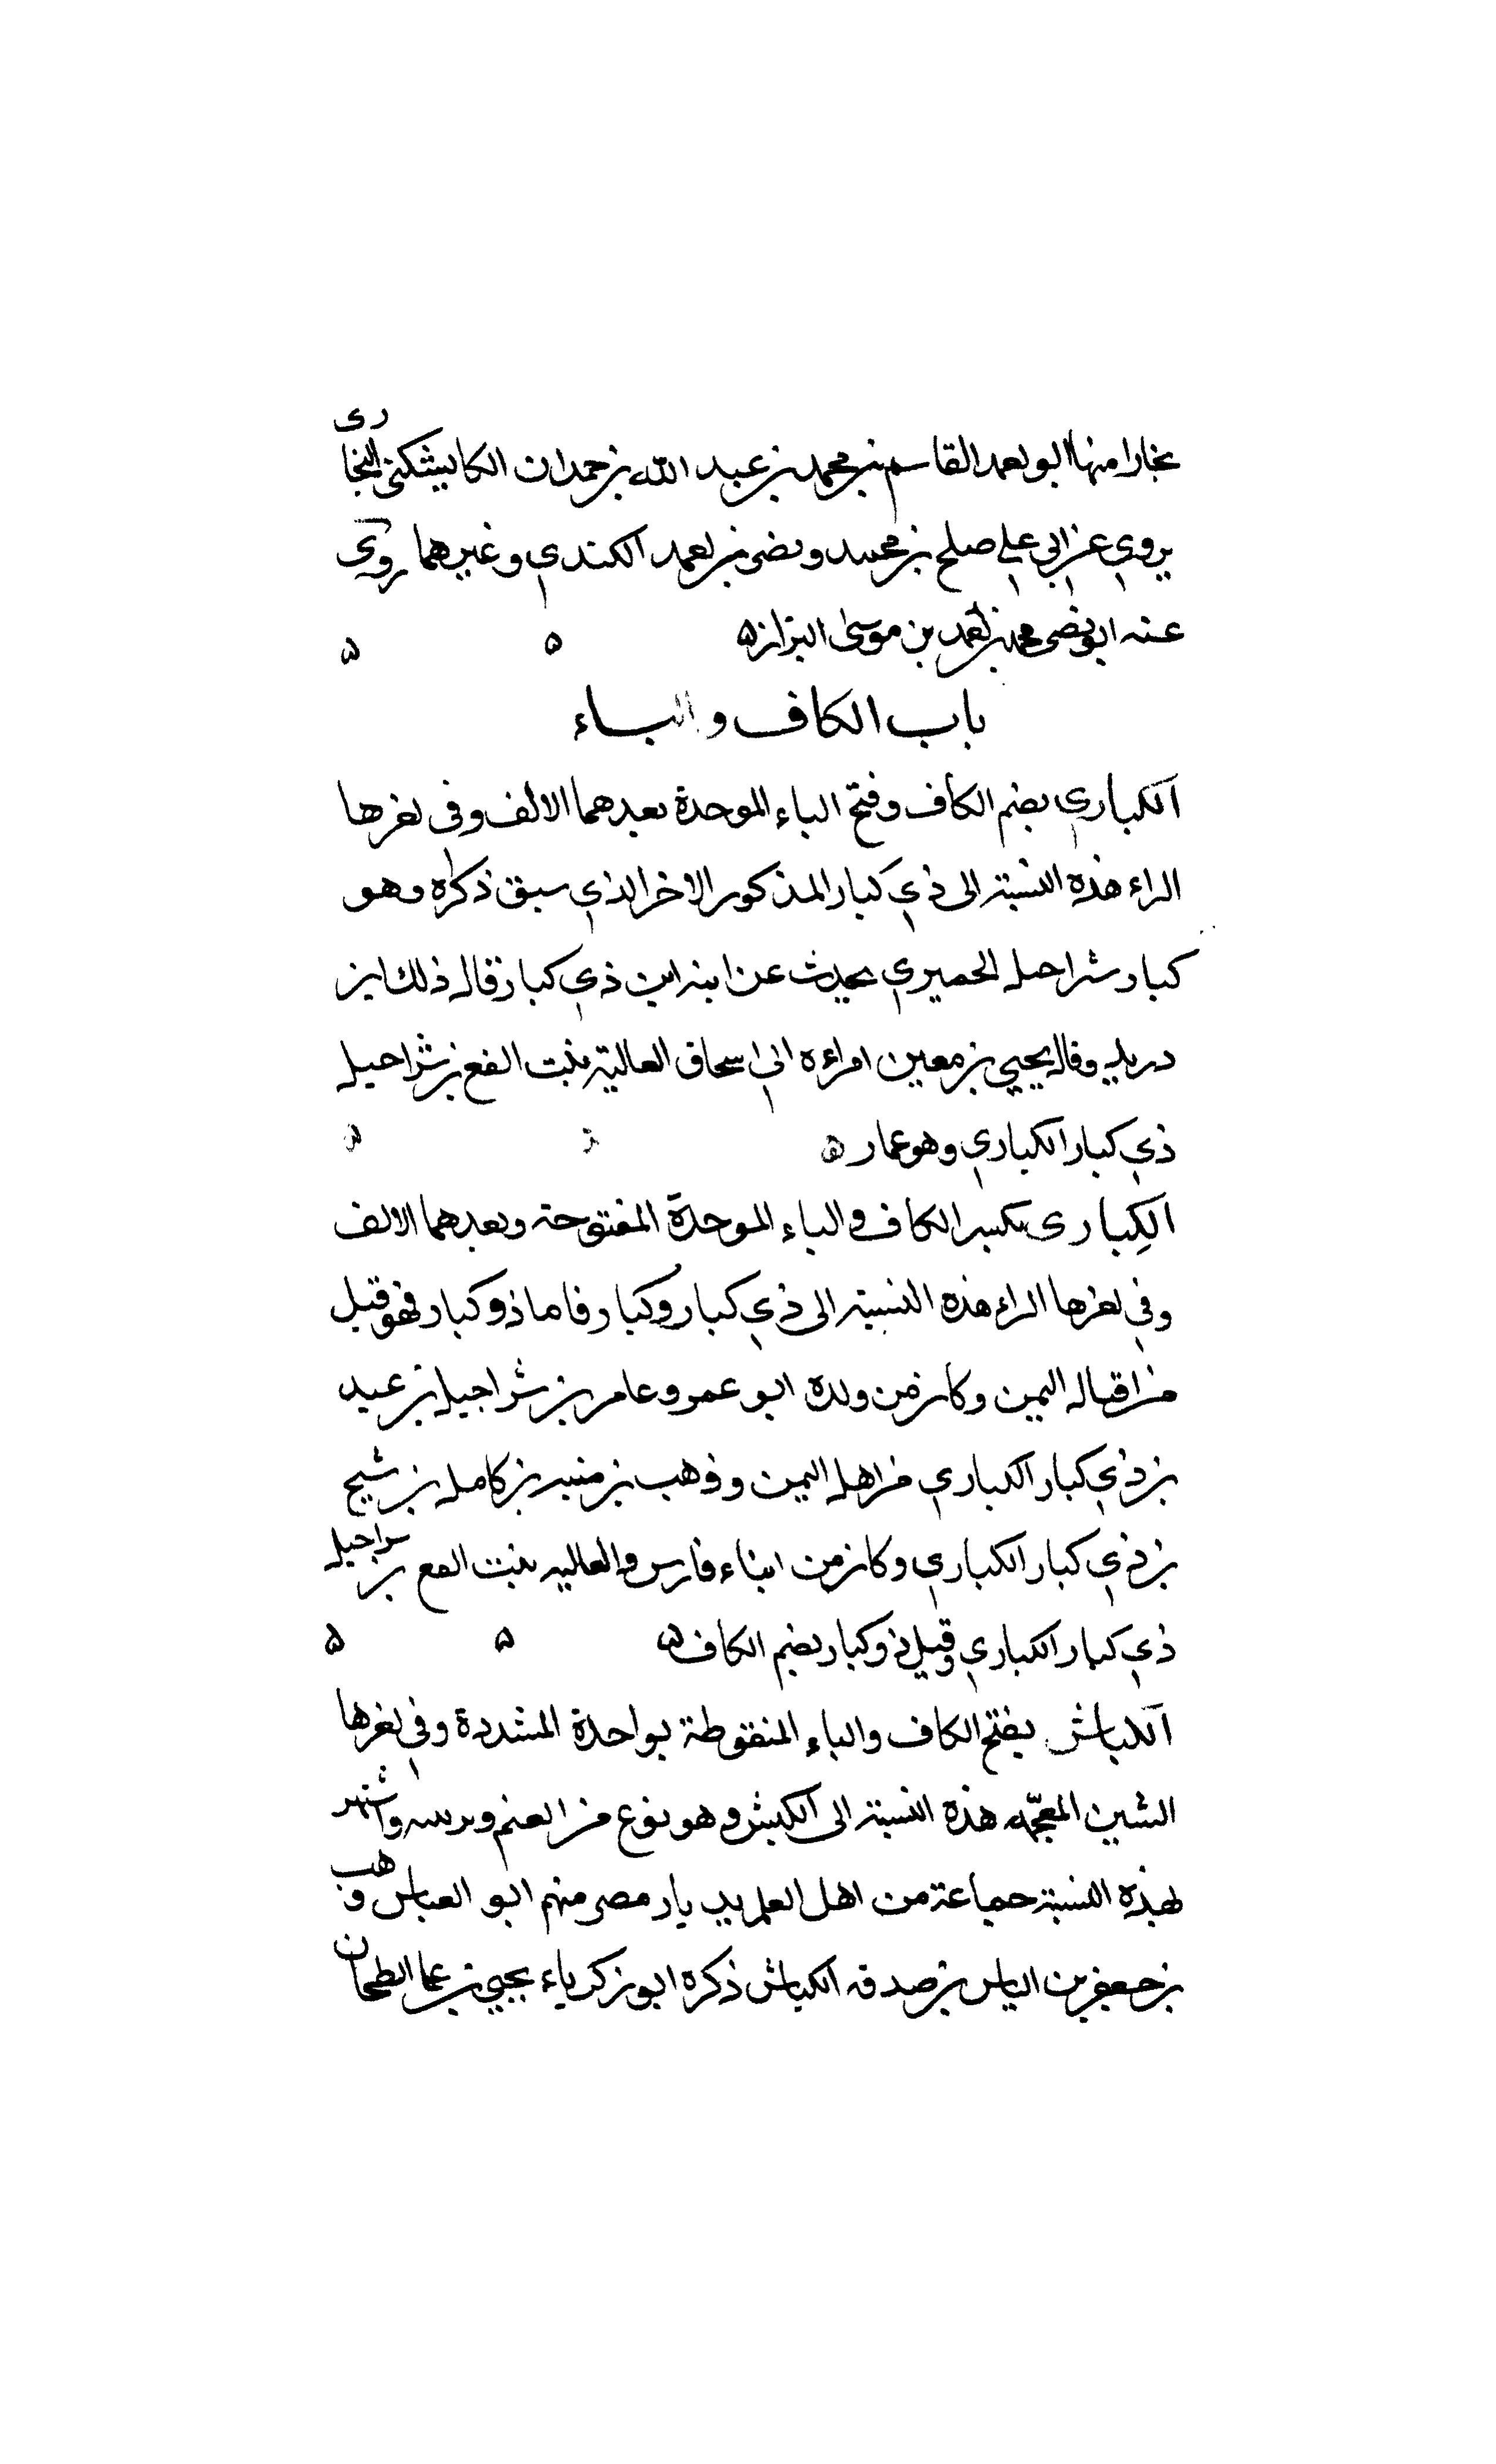 بخارا منها ابو احمد القاسم بن محمد بن عبد الله بن حمدان الكابيشكني البخاري
يروي عن ابي علي صلح بن محمد ونصر بن احمد الكندي وغيرهما روى
عنه ابو نصر محمد بن احمد بن موسى البزاز ه ه ه
باب الكاف والباء
الكباري بضم الكاف وفتح الباء الموحدة بعدهما الالف وفي اخرها
الراء هذه النسبة الى ذي كبار المذكور الاخر الذي سبق ذكره وهو
كبار شراحيل الحميري يحدث عن ابنه ابن ذي كبار قال ذلك ابن
دريد وقال يحيي بن معين امراءه ابي اسحاق العالية بنت ايفع بن شراحيل
ذي كبار الكباري وهو عمار ه
الكِباري بكسر الكاف والباء الموحدة المفتوحة وبعدهما الالف
وفي اخرها الراء هذه النسبة الى ذي كبار وكبار فاما ذو كبار فهو قيل
من اقيال اليمن وكان من ولده ابو عمرو عامر بن شراحيل بن عبد
بن ذي كبار الكباري من اهل اليمن ووهب بن منبه بن كامل بن شيخ
بن ذي كبار الكباري وكان من ابناء فارس والعاليه بنت ايفع بن شراحيل
ذي كبار الكباري وقيل ذو كبار بضم الكاف ه ه ه
الكباش بفتح الكاف والباء المنقوطة بواحدة المشددة وفي اخرها
الشين المعجمه هذه النسبة الى الكبش وهو نوع من الغنم واشتهر
بهذه النسبة جماعة من اهل العلم بديار مصر منهم ابو العباس وهب
بن جعفر بن الياس بن صدقه الكباش ذكره ابو زكرياء يحيي بن علي الطحان